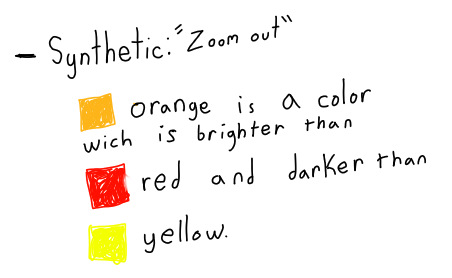 - Synthetic: "Zoom out"
orange is a color
wich is brighter than
red and darker than
yellow.